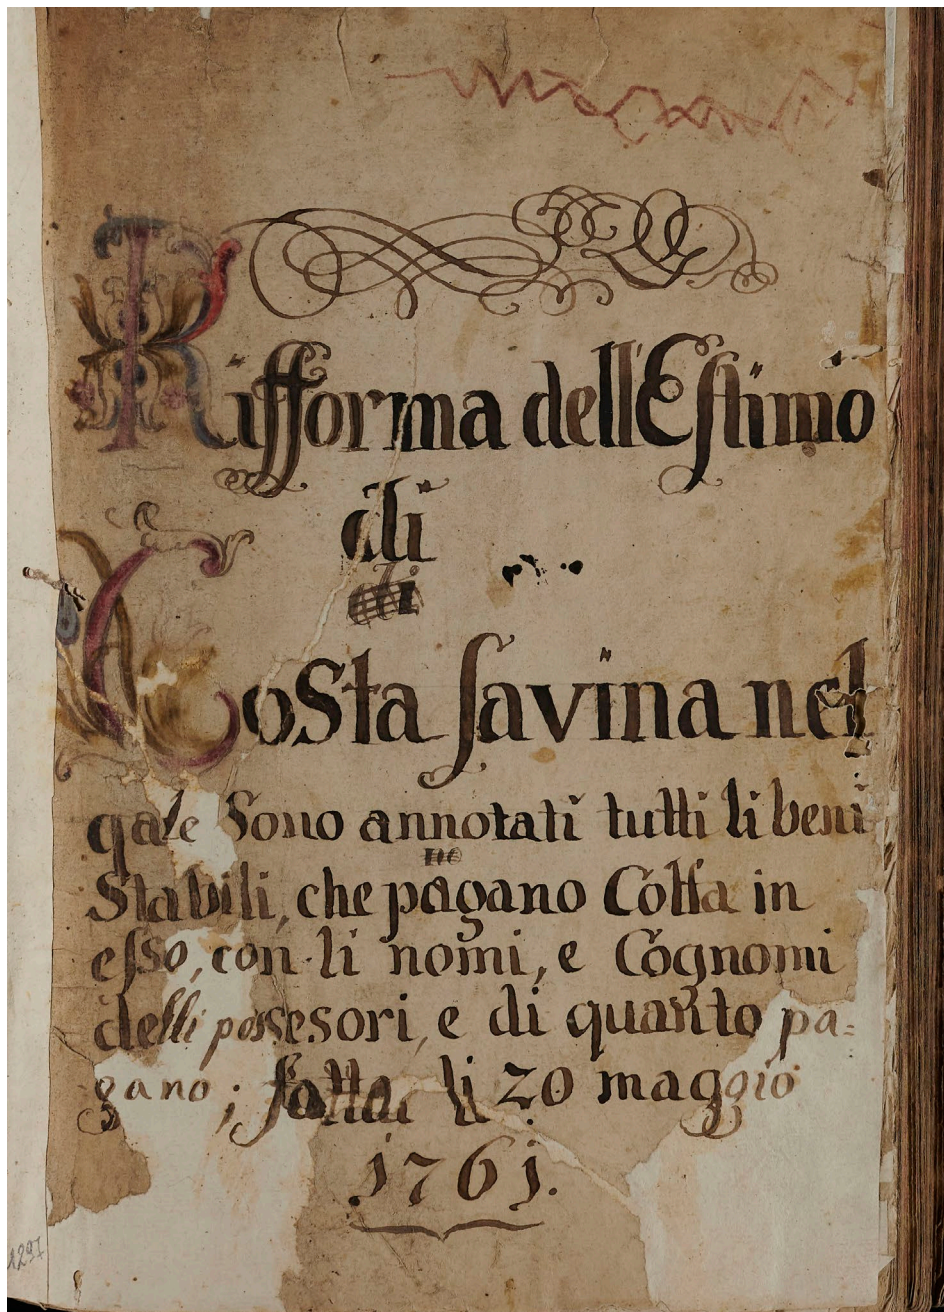 Rifforma dell'Estimo
di
Costa Savina nel
quale Sono annotati tutti li beni
Stabili, che pagano Colta in
esso, con li nomi, e Cognomi
delli possesori, e di quanto pa=
gano; fatta li 20 maggio
1761.
1297